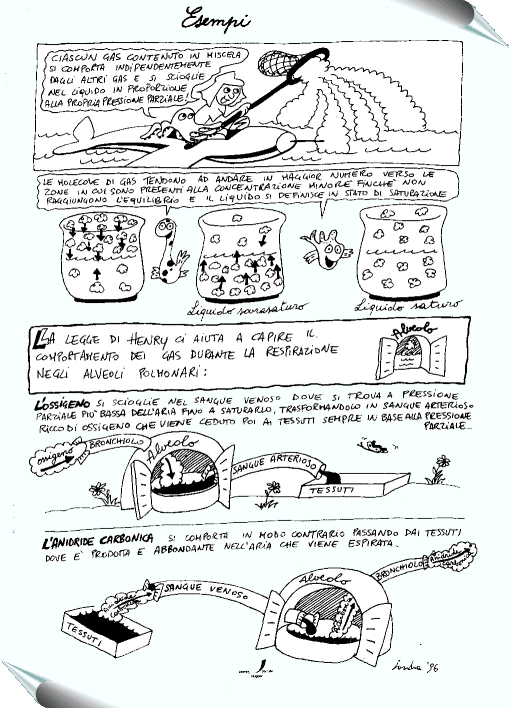 Esempi
CIASCUN GAS CONTENUTO IN MISCELA
SI COMPORTA INDIPENDENTEMENTE
DAGLI ALTRI GAS E SI SCIOGLIE
NEL LIQUIDO IN PROPORZIONE
ALLA PROPRIA PRESSIONE PARZIALE!
LE MOLECOLE DI GAS TENDONO AD ANDARE IN MAGGIOR NUMERO VERSO LE
ZONE IN CUI SONO PRESENTI ALLA CONCENTRAZIONE MINORE FINCHÈ NON
RAGGIUNGONO L'EQUILIBRIO E IL LIQUIDO SI DEFINISCE IN STATO DI SATURAZIONE
Liquido sovrasaturo
Liquido saturo
LA LEGGE DI HENRY CI AIUTA A CAPIRE IL
COMPORTAMENTO DEI GAS DURANTE LA RESPIRAZIONE
NEGLI ALVEOLI POLMONARI:
Alveolo
L'OSSIGENO SI SCIOGLIE NEL SANGUE VENOSO DOVE SI TROVA A PRESSIONE
PARZIALE PIÙ BASSA DELL'ARIA FINO A SATURARLO, TRASFORMANDOLO IN SANGUE ARTERIOSO
RICCO DI OSSIGENO CHE VIENE CEDUTO POI AI TESSUTI SEMPRE IN BASE ALLA PRESSIONE
PARZIALE..
ossigeno
BRONCHIOLO
Alveolo
SANGUE ARTERIOSO
TESSUTI
L'ANIDRIDE CARBONICA SI COMPORTA IN MODO CONTRARIO PASSANDO DAI TESSUTI
DOVE È PRODOTTA E ABBONDANTE NELL'ARIA CHE VIENE ESPIRATA..
BRONCHIOLO
anidride carbonica
Alveolo
anidride carbonica
SANGUE VENOSO
TESSUTI
'96